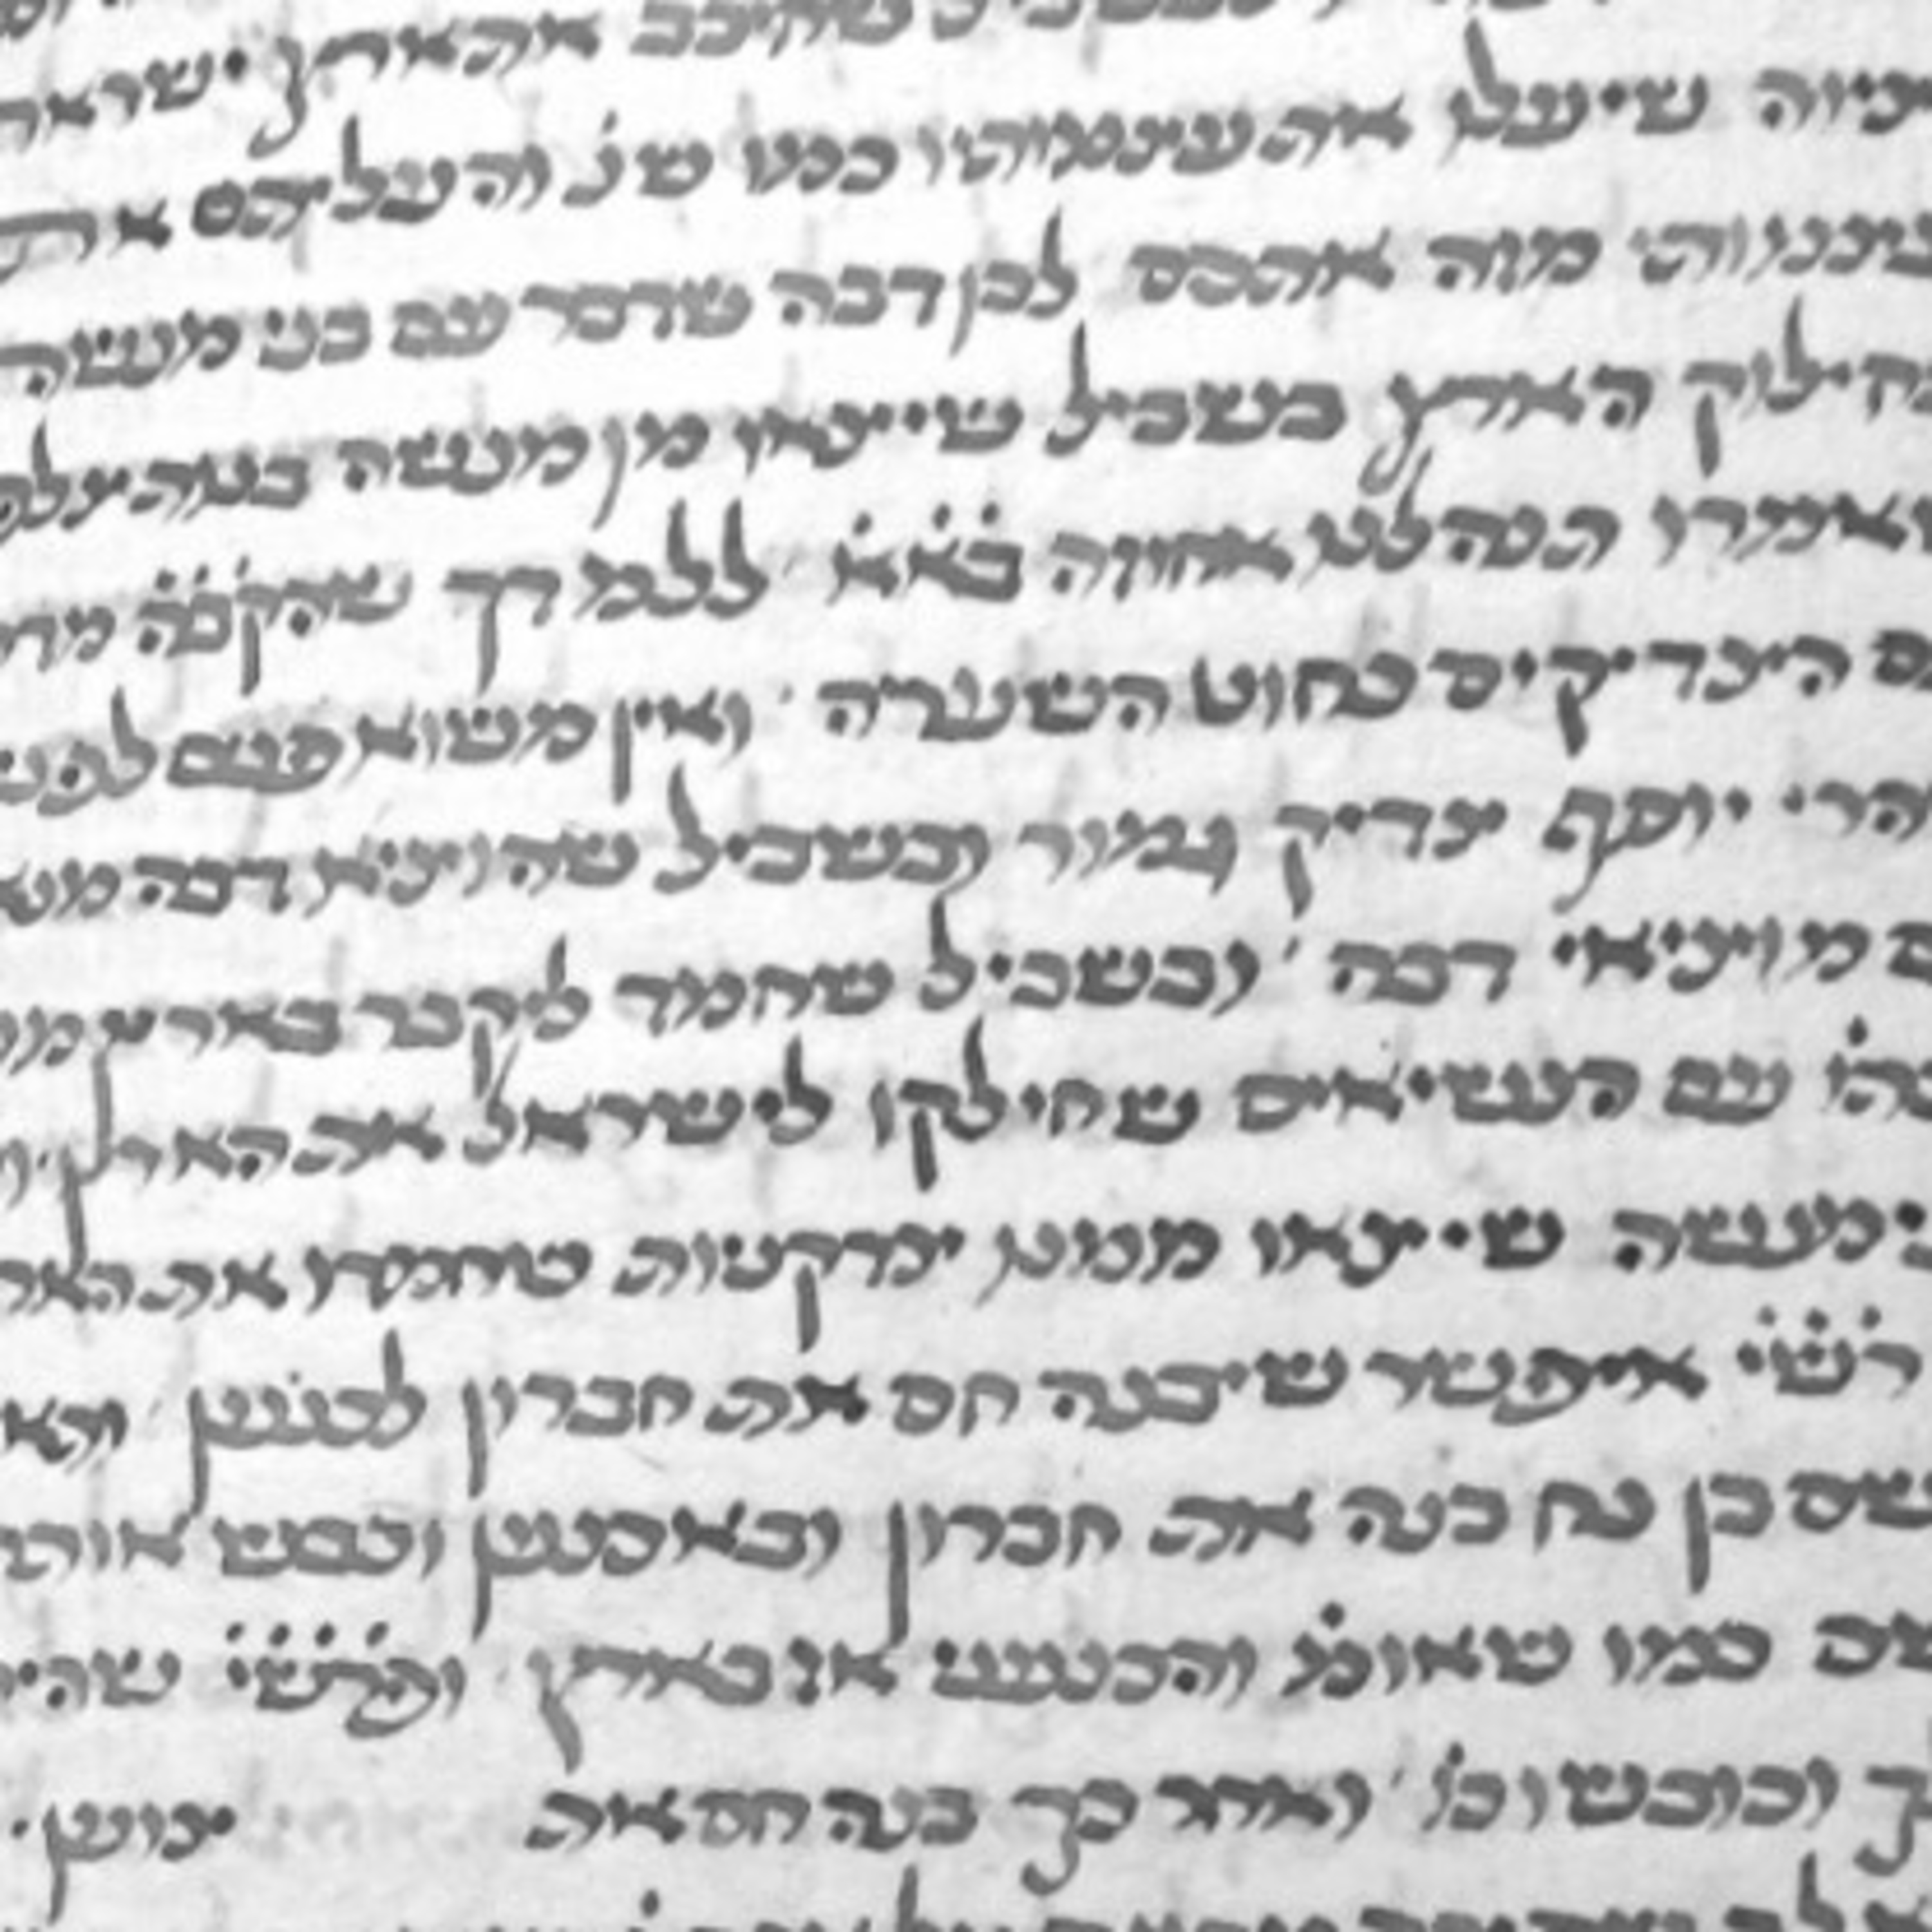 בשביל שחיבב את הארץ ישראל
שיעלו את עצמותיו כמו שנ׳ והעליתם את
עצמותי מזה אתכם לכן דבה שדבר עם בני מנשה
חילוק הארץ בשביל שייצאו מן מנשה בנות צלפ
אמרו תנה לנו אחוזה בא״א ללמדך שהק״בה מד
הצדיקים כחוט השערה ואין משוא פנים לפני
הרי יוסף צדיק גמור ובשביל שהוציא דבה מנא
ם מוציאי דבה ובשביל שחמד ליקבר בארץ
עם הנשיאים שחילקו לישראל את הארץ
מנשה שייצאו ממנו צדקניות שחמדו את האר
רש״י איפשר שיבנה חם את חברון לכנען
שם בן נח בנה את חברון ובא כנען וכבש אותה
שם כמו שאומ׳ והכנעני אז בארץ ופרש״י שהיה
ך וכובש וכו׳ ואחר כך בנה חם את צוען.